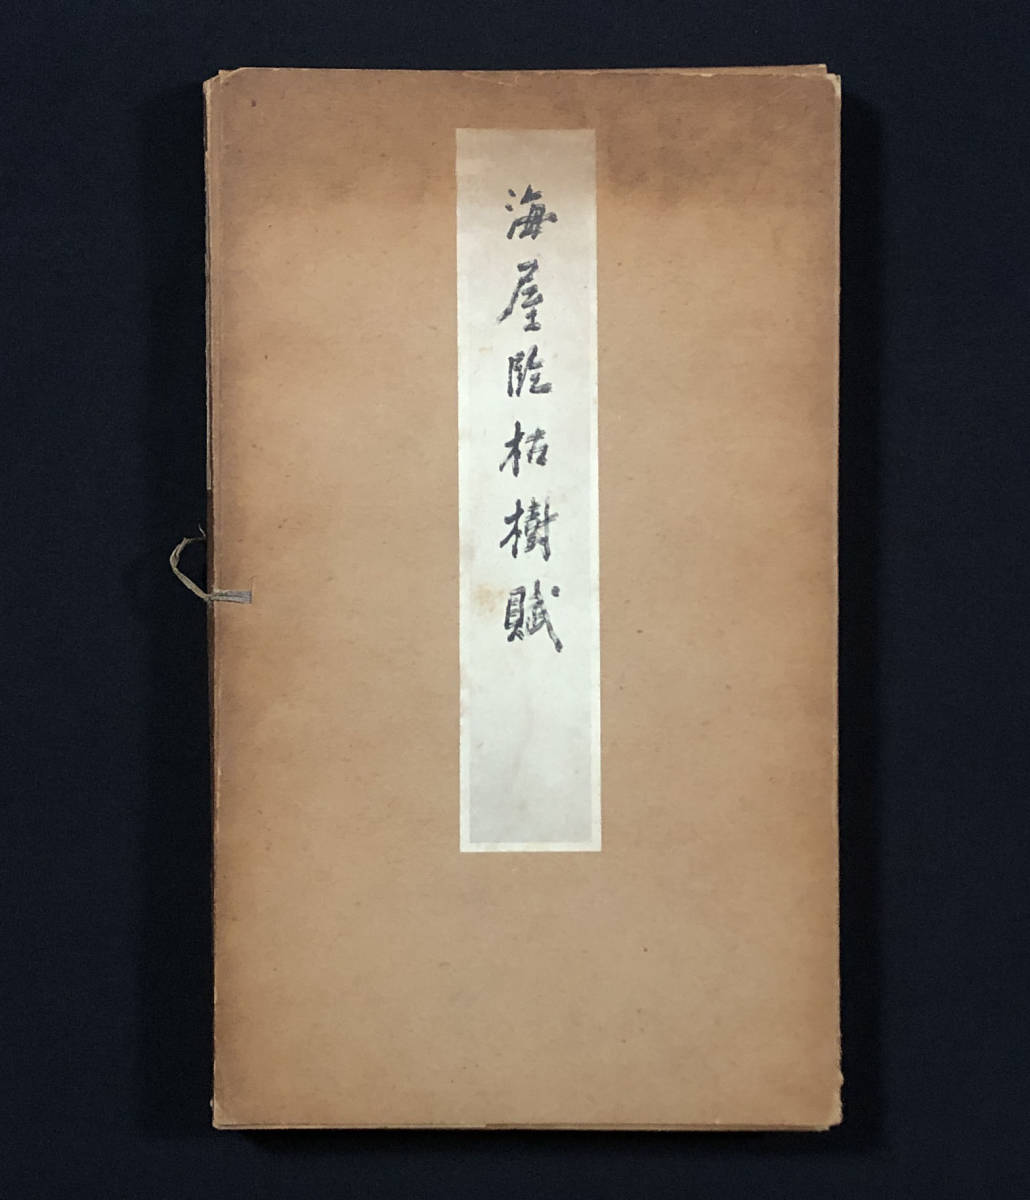 海屋臨枯樹賦